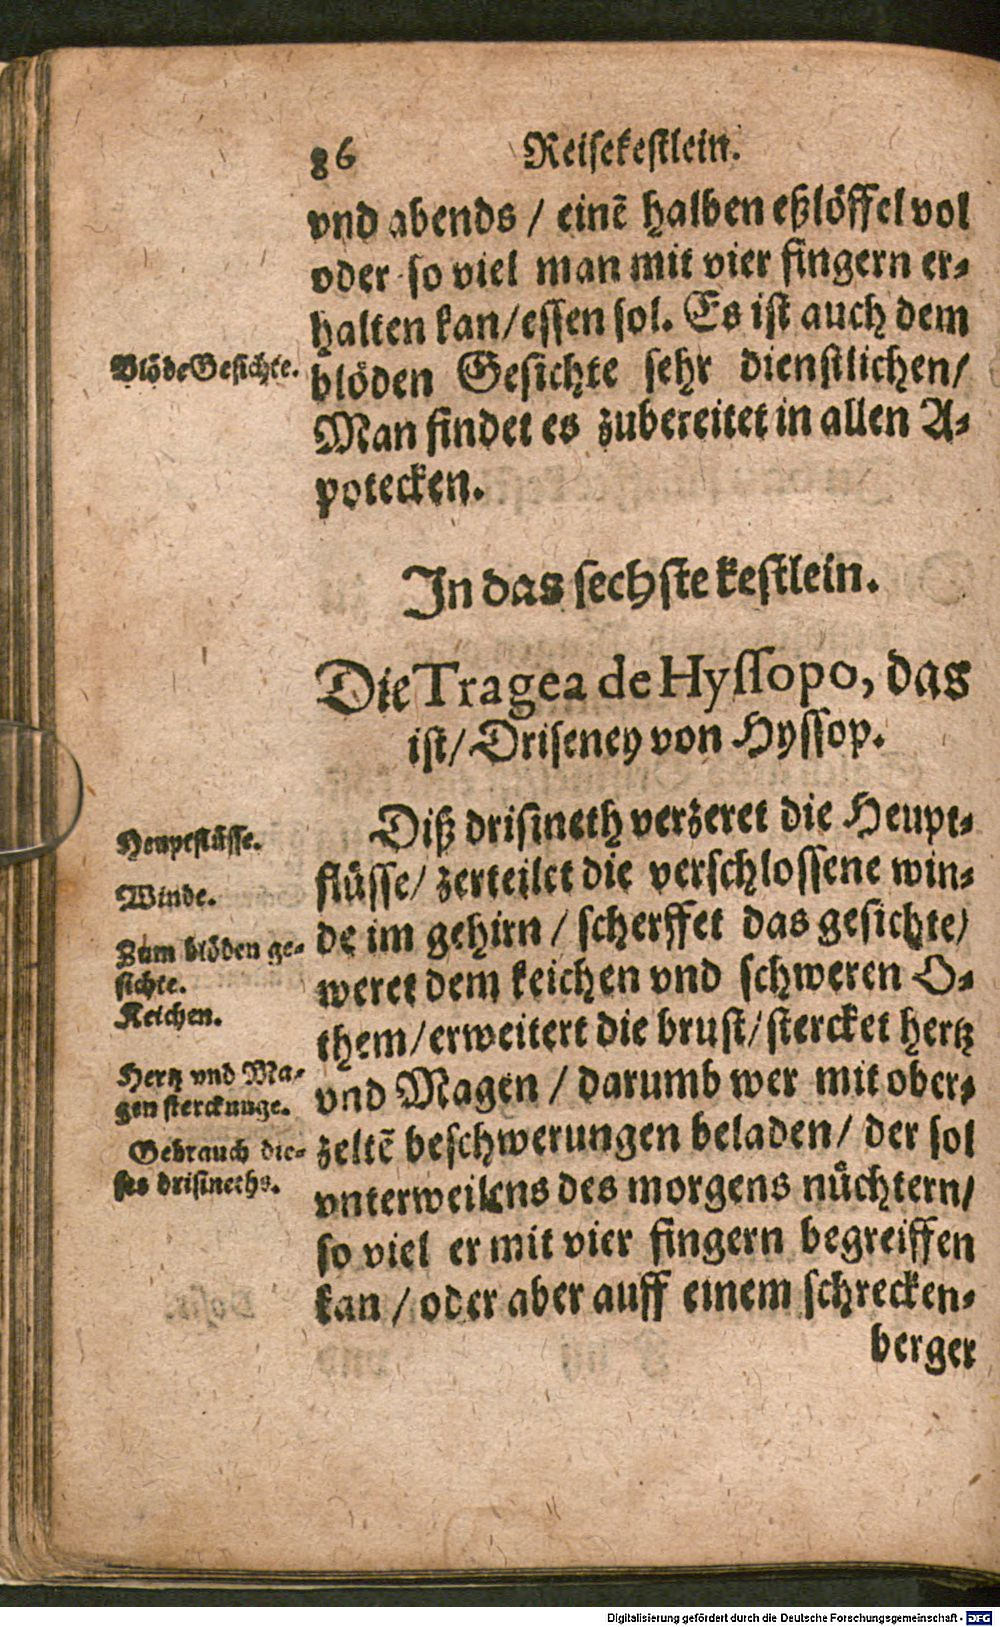 86 Reisekestlein.
vnd abends / einẽ halben eßlöffel vol
oder so viel man mit vier fingern er-
halten kan/essen sol. Es ist auch dem
Blöde Gesichte.
blöden Gesichte sehr dienstlichen/
Man findet es zubereitet in allen A-
potecken.
In das sechste kestlein.
Die Tragea de Hyssopo, das
ist/ Driseney von Hyssop.
Diß drisineth verzeret die Heupt-
Heuptflüsse.
flüsse/ zerteilet die verschlossene win-
Winde.
de im gehirn / scherffet das gesichte/
Zum blöden ge-
sichte.
weret dem keichen vnd schweren O-
Keichen.
them/erweitert die brust/stercket hertz
Hertz vnd Ma-
gen sterckunge.
vnd Magen / darumb wer mit ober-
zeltẽ beschwerungen beladen/ der sol
Gebrauch die-
ses drisineths.
vnterweilens des morgens nüchtern/
so viel er mit vier fingern begreiffen
kan / oder aber auff einem schrecken-
berger
Digitalisierung gefördert durch die Deutsche Forschungsgemeinschaft - DFG